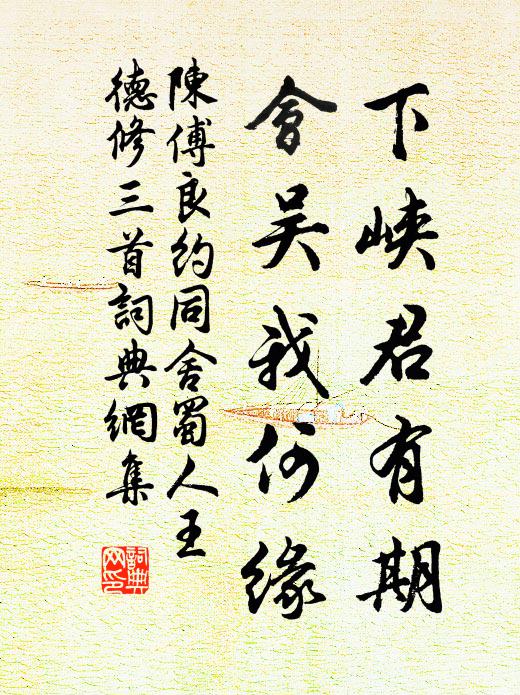 下峽君有期
會吳我何緣
陳傅良約同舍蜀人王
德修三首詞典網集
詞典网印